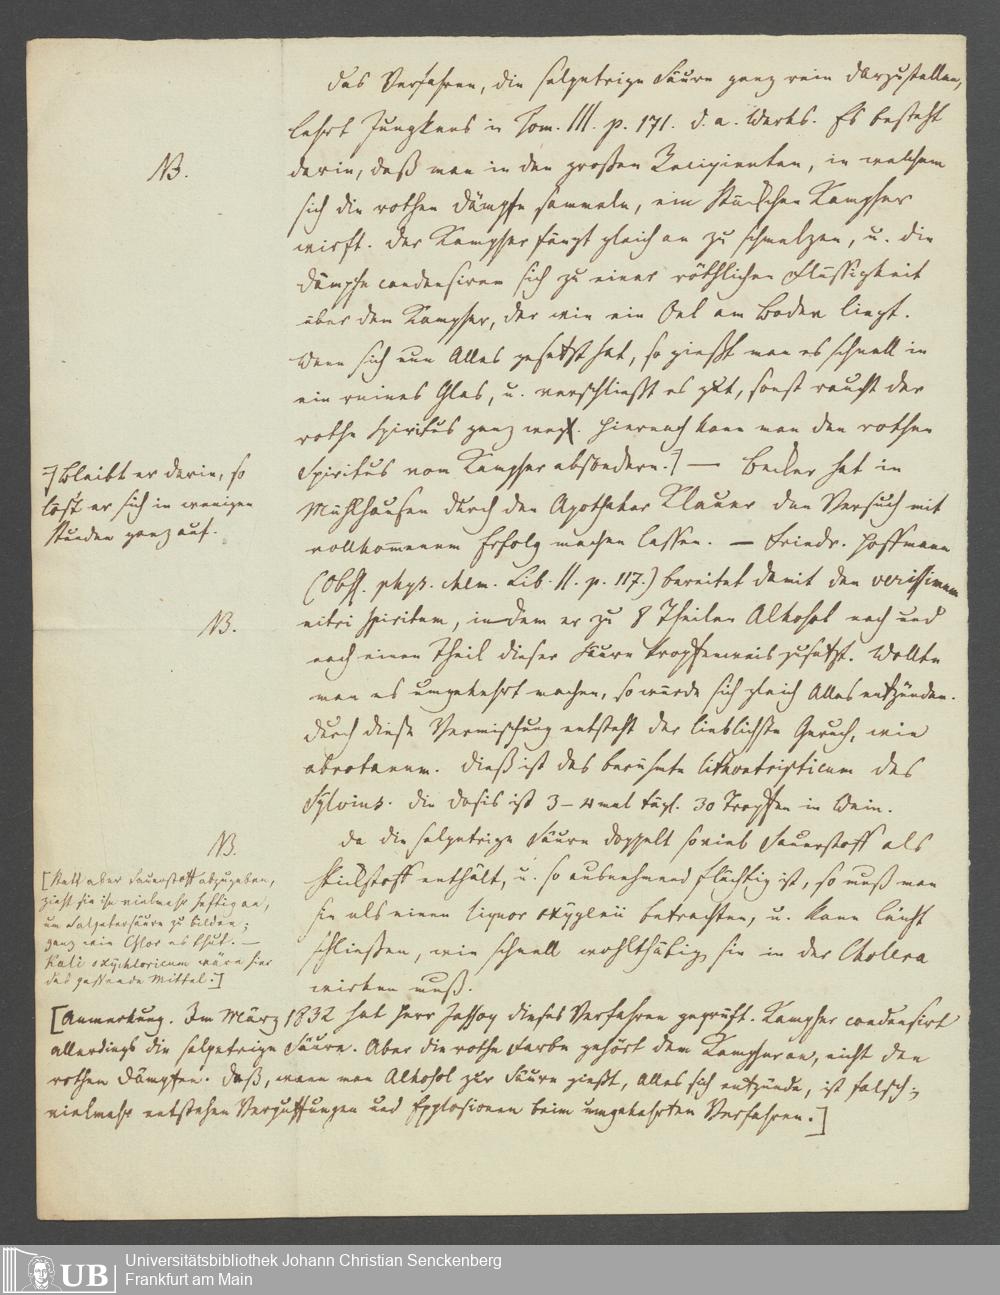 Das Verfahren, die salpetrige Säure ganz rein darzustellen,
lehrt Jungkens in Tom. III. p. 171. d. a. Werks. Es besteht
NB.
darin, daß man in den großen Recipienten, in welchem
sich die rothen Dämpfe sammeln, ein Stückchen Kampher
wirft. Der Kampher fängt gleich an zu schmelzen, u. die
Dämpfe condensiren sich zu einer röthlichen Flüssigkeit
über dem Kampher, der wie ein Oel am Boden liegt.
Wenn sich nun Alles gesetzt hat, so gießt man es schnell in
ein reines Glas, u. verschließt es gut, sonst raucht der
rothe Spiritus ganz weg. Hiernach kann man den rothen
Spiritus vom Kampher absondern.] — Becker hat in
Mühlhausen durch den Apotheker Klauer den Versuch mit
vollkommenem Erfolg machen lassen. — Friedr. Hoffmann
(Obss. phys. chem. Lib. II. p. 117.) bereitet damit den verissimum
nitri spiritum, indem er zu 8 Theilen Alkohol nach und
nach einen Theil dieser Säure tropfenweis zusetzt. Wollte
man es umgekehrt machen, so würde sich gleich Alles entzünden.
Durch diese Vermischung entsteht der lieblichste Geruch, wie
abrotanum. Dieß ist das berühmte lithontripticum des
Sylvius. Die Dosis ist 3–4mal tägl. 30 Tropfen in Wein.
] Bleibt er darin, so
löst er sich in wenigen
Stunden ganz auf.
NB.
NB.
Da die salpetrige Säure doppelt soviel Sauerstoff als
Stickstoff enthält, u. so ausnehmend flüchtig ist, so muß man
sie als einen liquor oxygenii betrachten, u. kann leicht
schließen, wie schnell wohlthätig sie in der Cholera
wirken muß.
[Statt aber Sauerstoff abzugeben,
zieht sie ihn vielmehr heftig an,
um Salpetersäure zu bilden;
ganz wie Chlor es thut. —
Kali oxychloricum wäre hier
das passende Mittel.]
[Anmerkung. Im März 1832 hat Herr Jassoy dieses Verfahren geprüft. Kampher condensirt
allerdings die salpetrige Säure. Aber die rothe Farbe gehört dem Kampher an, nicht den
rothen Dämpfen. Daß, wenn man Alkohol zur Säure gießt, Alles sich entzünde, ist falsch;
vielmehr entstehen Verpuffungen und Explosionen beim umgekehrten Verfahren.]
UB
Universitätsbibliothek Johann Christian Senckenberg
Frankfurt am Main